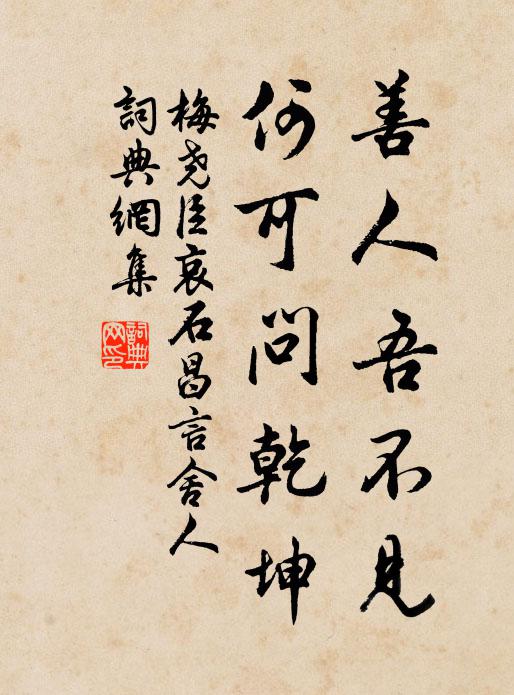 善人吾不見
何可問乾坤
梅尭臣哀石昌言舍人
詞典網集
詞典网印